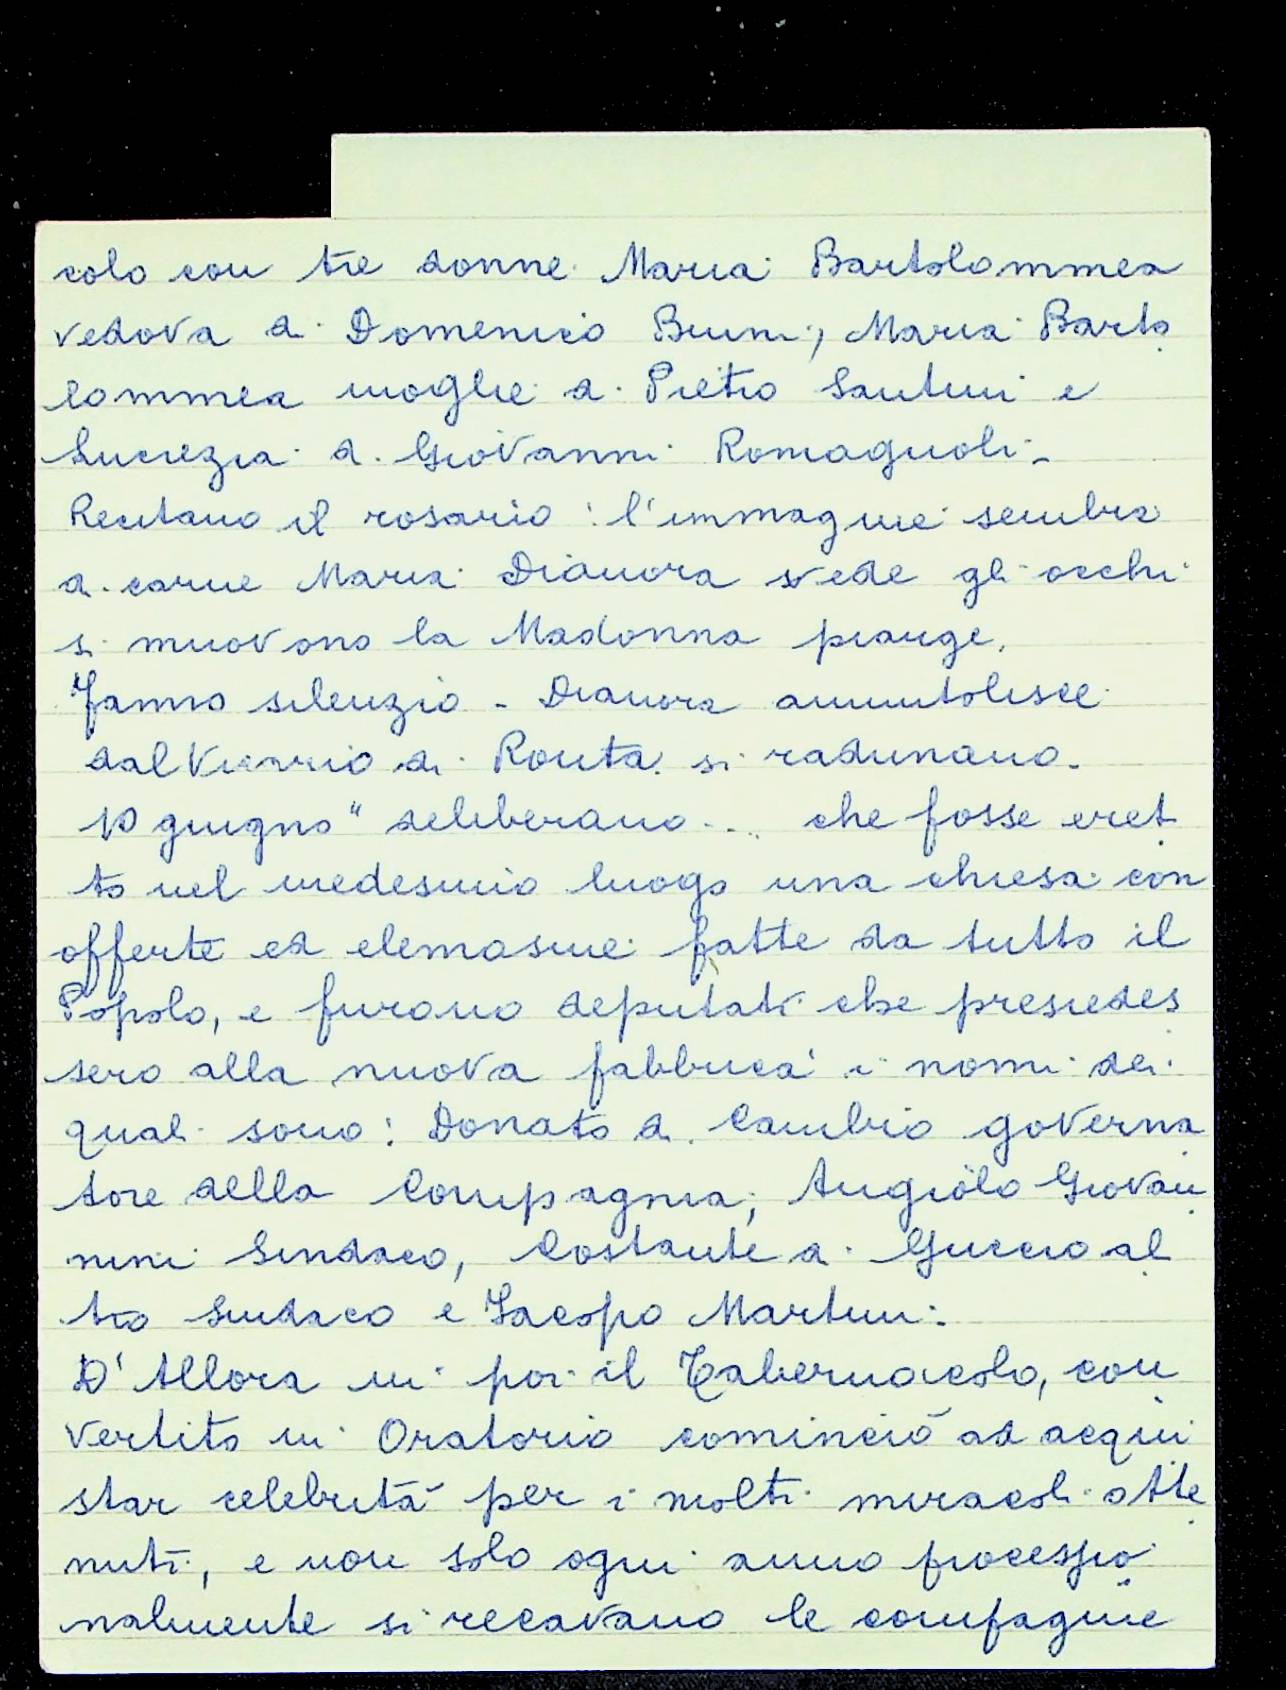 colo con tre donne Maria Bartolommea
vedova di Domenico Buini, Maria Barto
lommea moglie di Pietro Santini e
Lucrezia di Giovanni Romagnoli -
Recitano il rosario : l'immagine sembra
di carne Maria Dianora vede gli occhi
si muovono la Madonna piange.
Fanno silenzio - Dianora ammutolisce
dal Vicario di Ronta si radunano.
10 giugno " deliberano ... che fosse eret
to nel medesimo luogo una chiesa con
offerte ed elemosine fatte da tutto il
Popolo, e furono deputati che presiedes
sero alla nuova fabbrica i nomi dei
quali sono : Donato di Cambio governa
tore della Compagnia, Angiolo Giovan
nini Sindaco, Costante di Guccio al
tro Sindaco e Jacopo Martini.
D'Allora in poi il Tabernacolo, con
vertito in Oratorio cominciò ad acqui
star celebrità per i molti miracoli otte
nuti, e non solo ogni anno processio
nalmente si recavano le compagnie